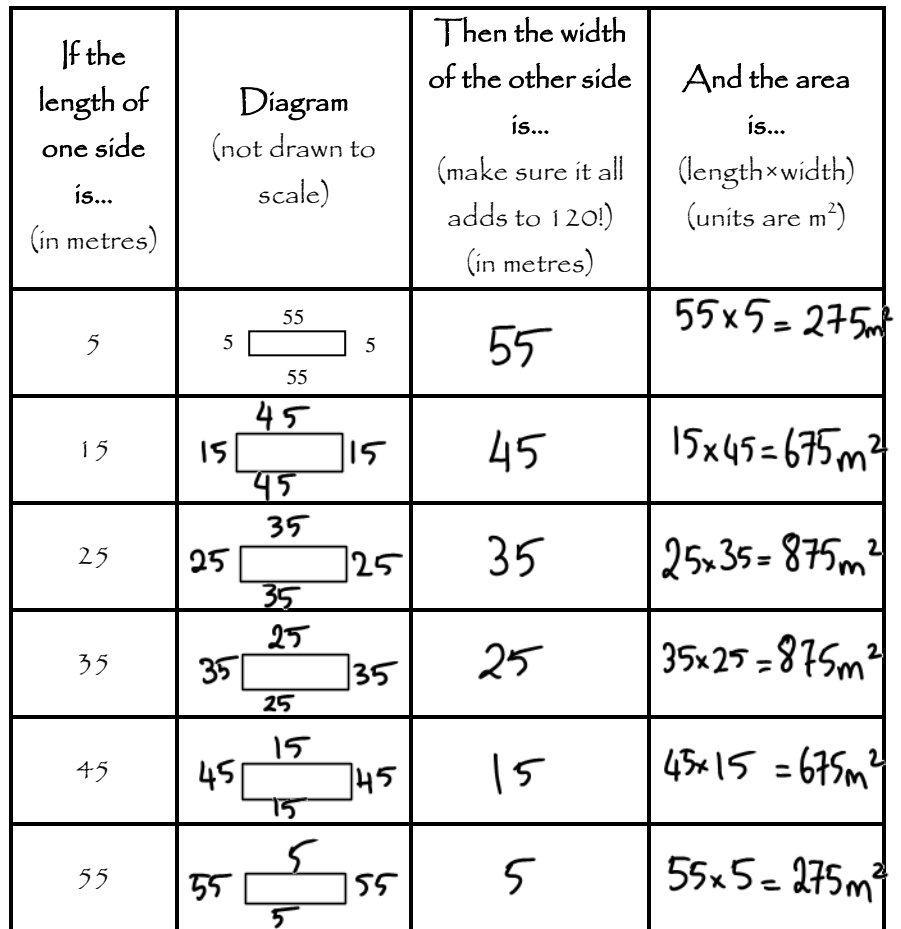 If the
length of
one side
is...
(in metres)
Diagram
(not drawn to
scale)
Then the width
of the other side
is...
(make sure it all
adds to 120!)
(in metres)
And the area
is...
(length×width)
(units are m²)
5
55
5 5
55
55
55×5= 275m²
15
45
15 15
45
45
15×45=675m²
25
35
25 25
35
35
25×35= 875m²
35
25
35 35
25
25
35×25 =875m²
45
15
45 45
15
15
45×15 =675m²
55
5
55 55
5
5
55×5= 275m²